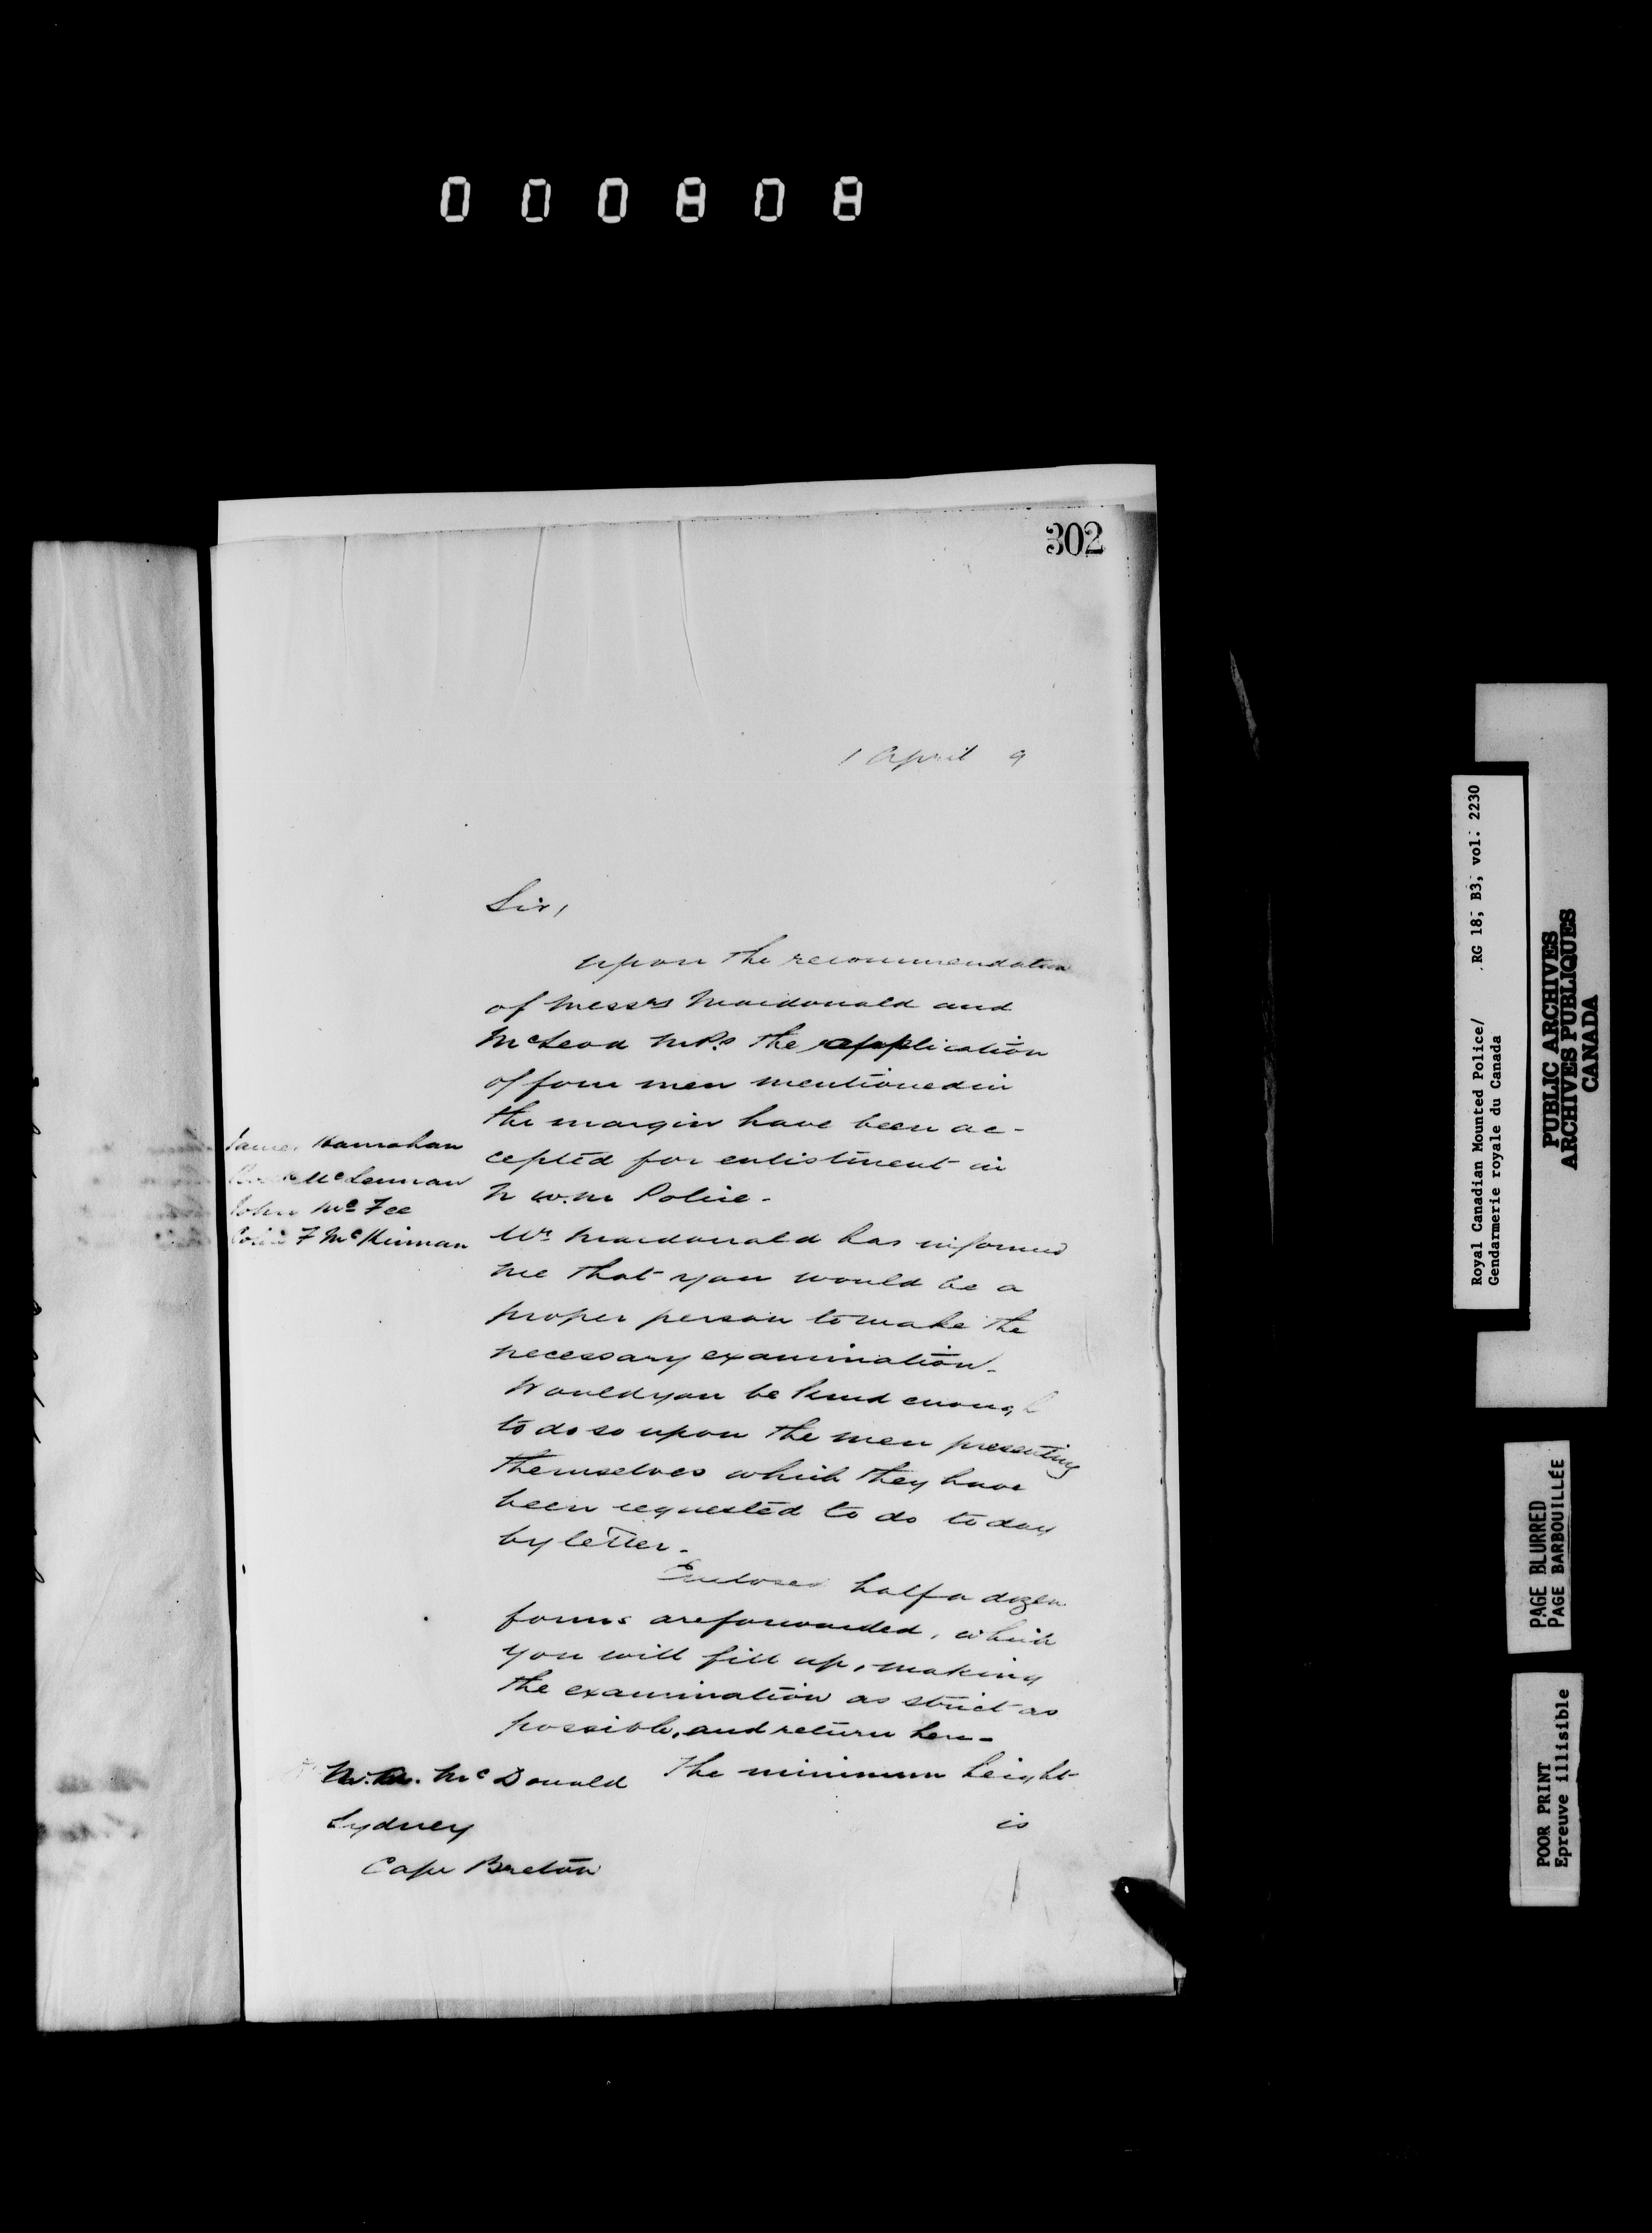 000808
302
1 April 9
Sir,
upon the recommendation
of Messrs Macdonald and
McLeod M.P.s the application
of four men mentioned in
the margin have been ac-
cepted for enlistment in
N W. M Police.
James Hanrahan
McLennan
John McFee
F McKinnan
Mr Macdonald has informed
me that you would be a
proper person to make the
necessary examination.
Would you be kind enough
to do so upon the men presenting
themselves which they have
been requested to do today
by letter.
Enclosed half a dozen
forms are forwarded, which
you will fill up, making
the examination as strict as
possible, and return here.
The minimum height
is
McDonald
Sydney
Cape Breton
Royal Canadian Mounted Police/ RG 18, B3, vol. 2230
Gendarmerie royale du Canada
PUBLIC ARCHIVES
ARCHIVES PUBLIQUES
CANADA
PAGE BLURRED
PAGE BARBOUILLÉE
POOR PRINT
Epreuve illisible